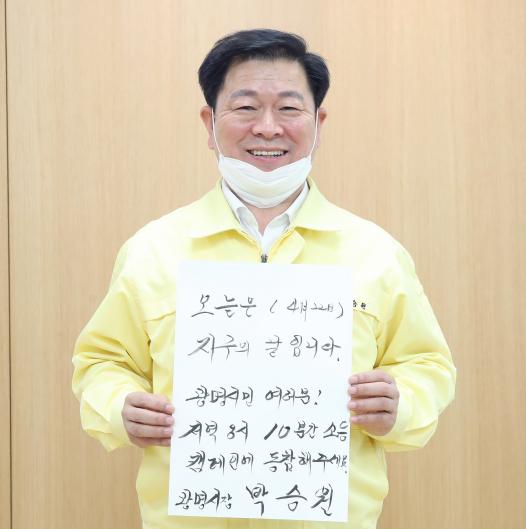 오늘은 (4月22日)
지구의 날입니다.
광명시민 여러분!
저녁 8시 10분간 소등
캠페인에 동참해주세요.
광명시장 박승원
원